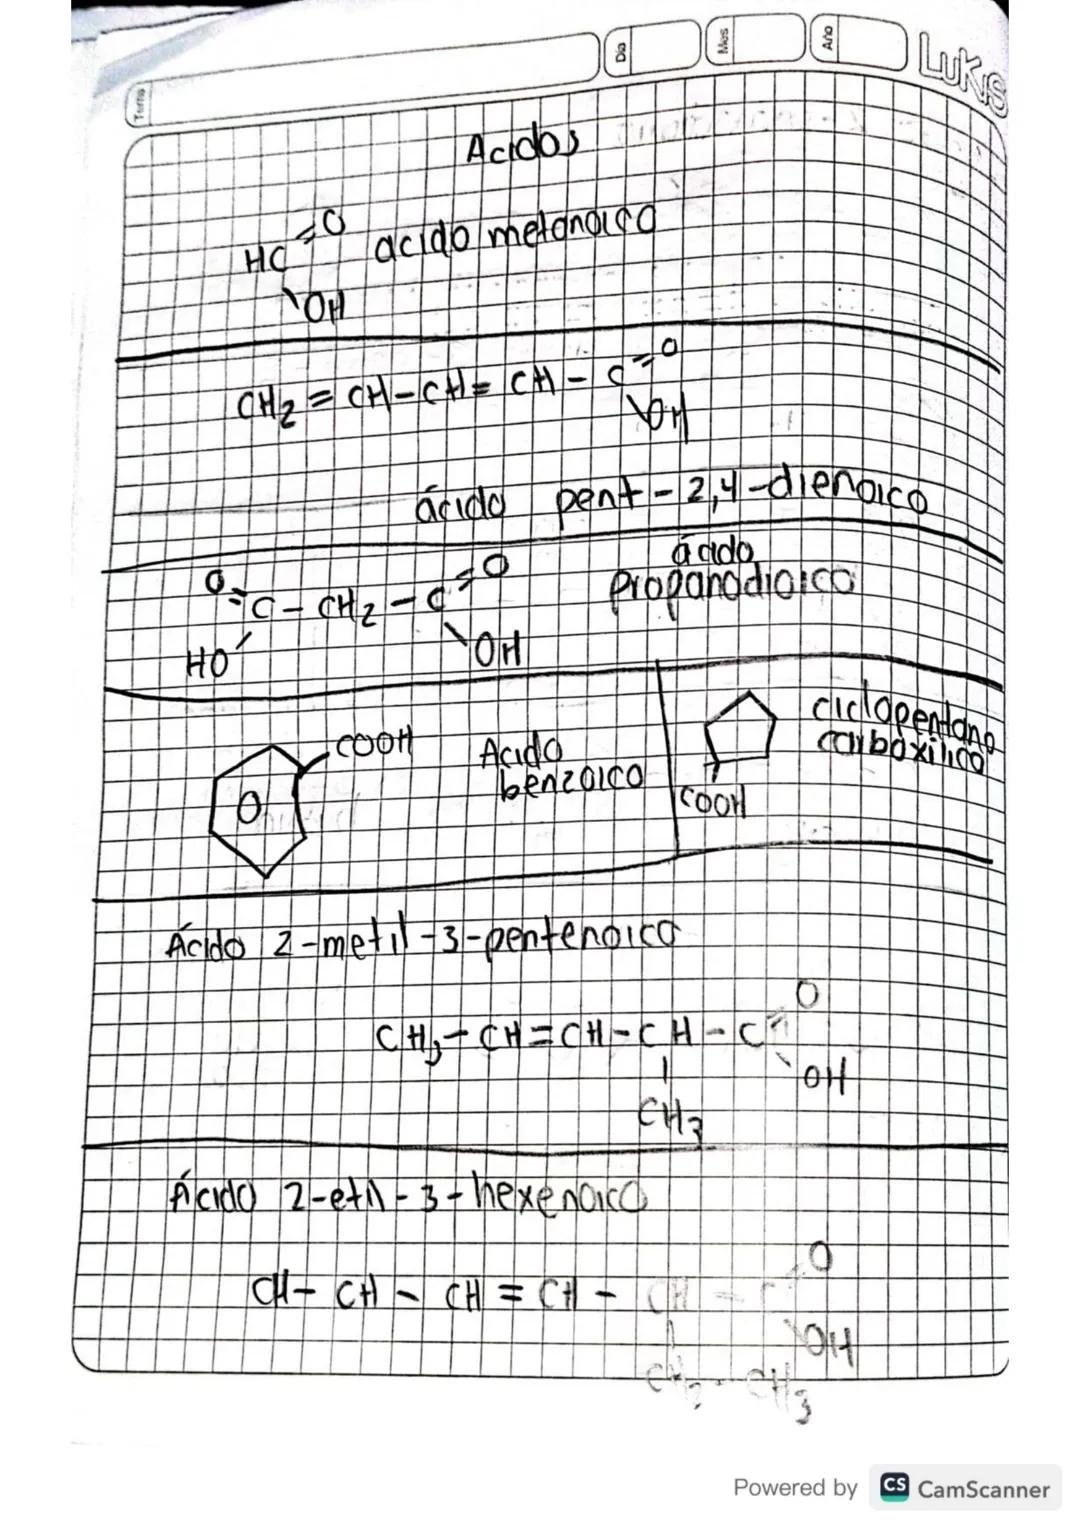 Tema
Dia
Mes
Año
LuKis
Acidos
HC=O acido metanoico
OH
CH2 = CH-CH= CH - C=O
OH
ácido pent-2,4-dienoico
O=C - CH2 - C=O ácido
propanodioico
HO OH
COOH Acido
benzoico
O
ciclopentano
carboxilico
COOH
Ácido 2-metil-3-pentenoico
O
CH3-CH=CH-CH-C=
OH
CH3
Ácido 2-etil-3-hexenoico
O
CH- CH - CH = CH - CH - C
OH
CH2 - CH3
Powered by CS CamScanner